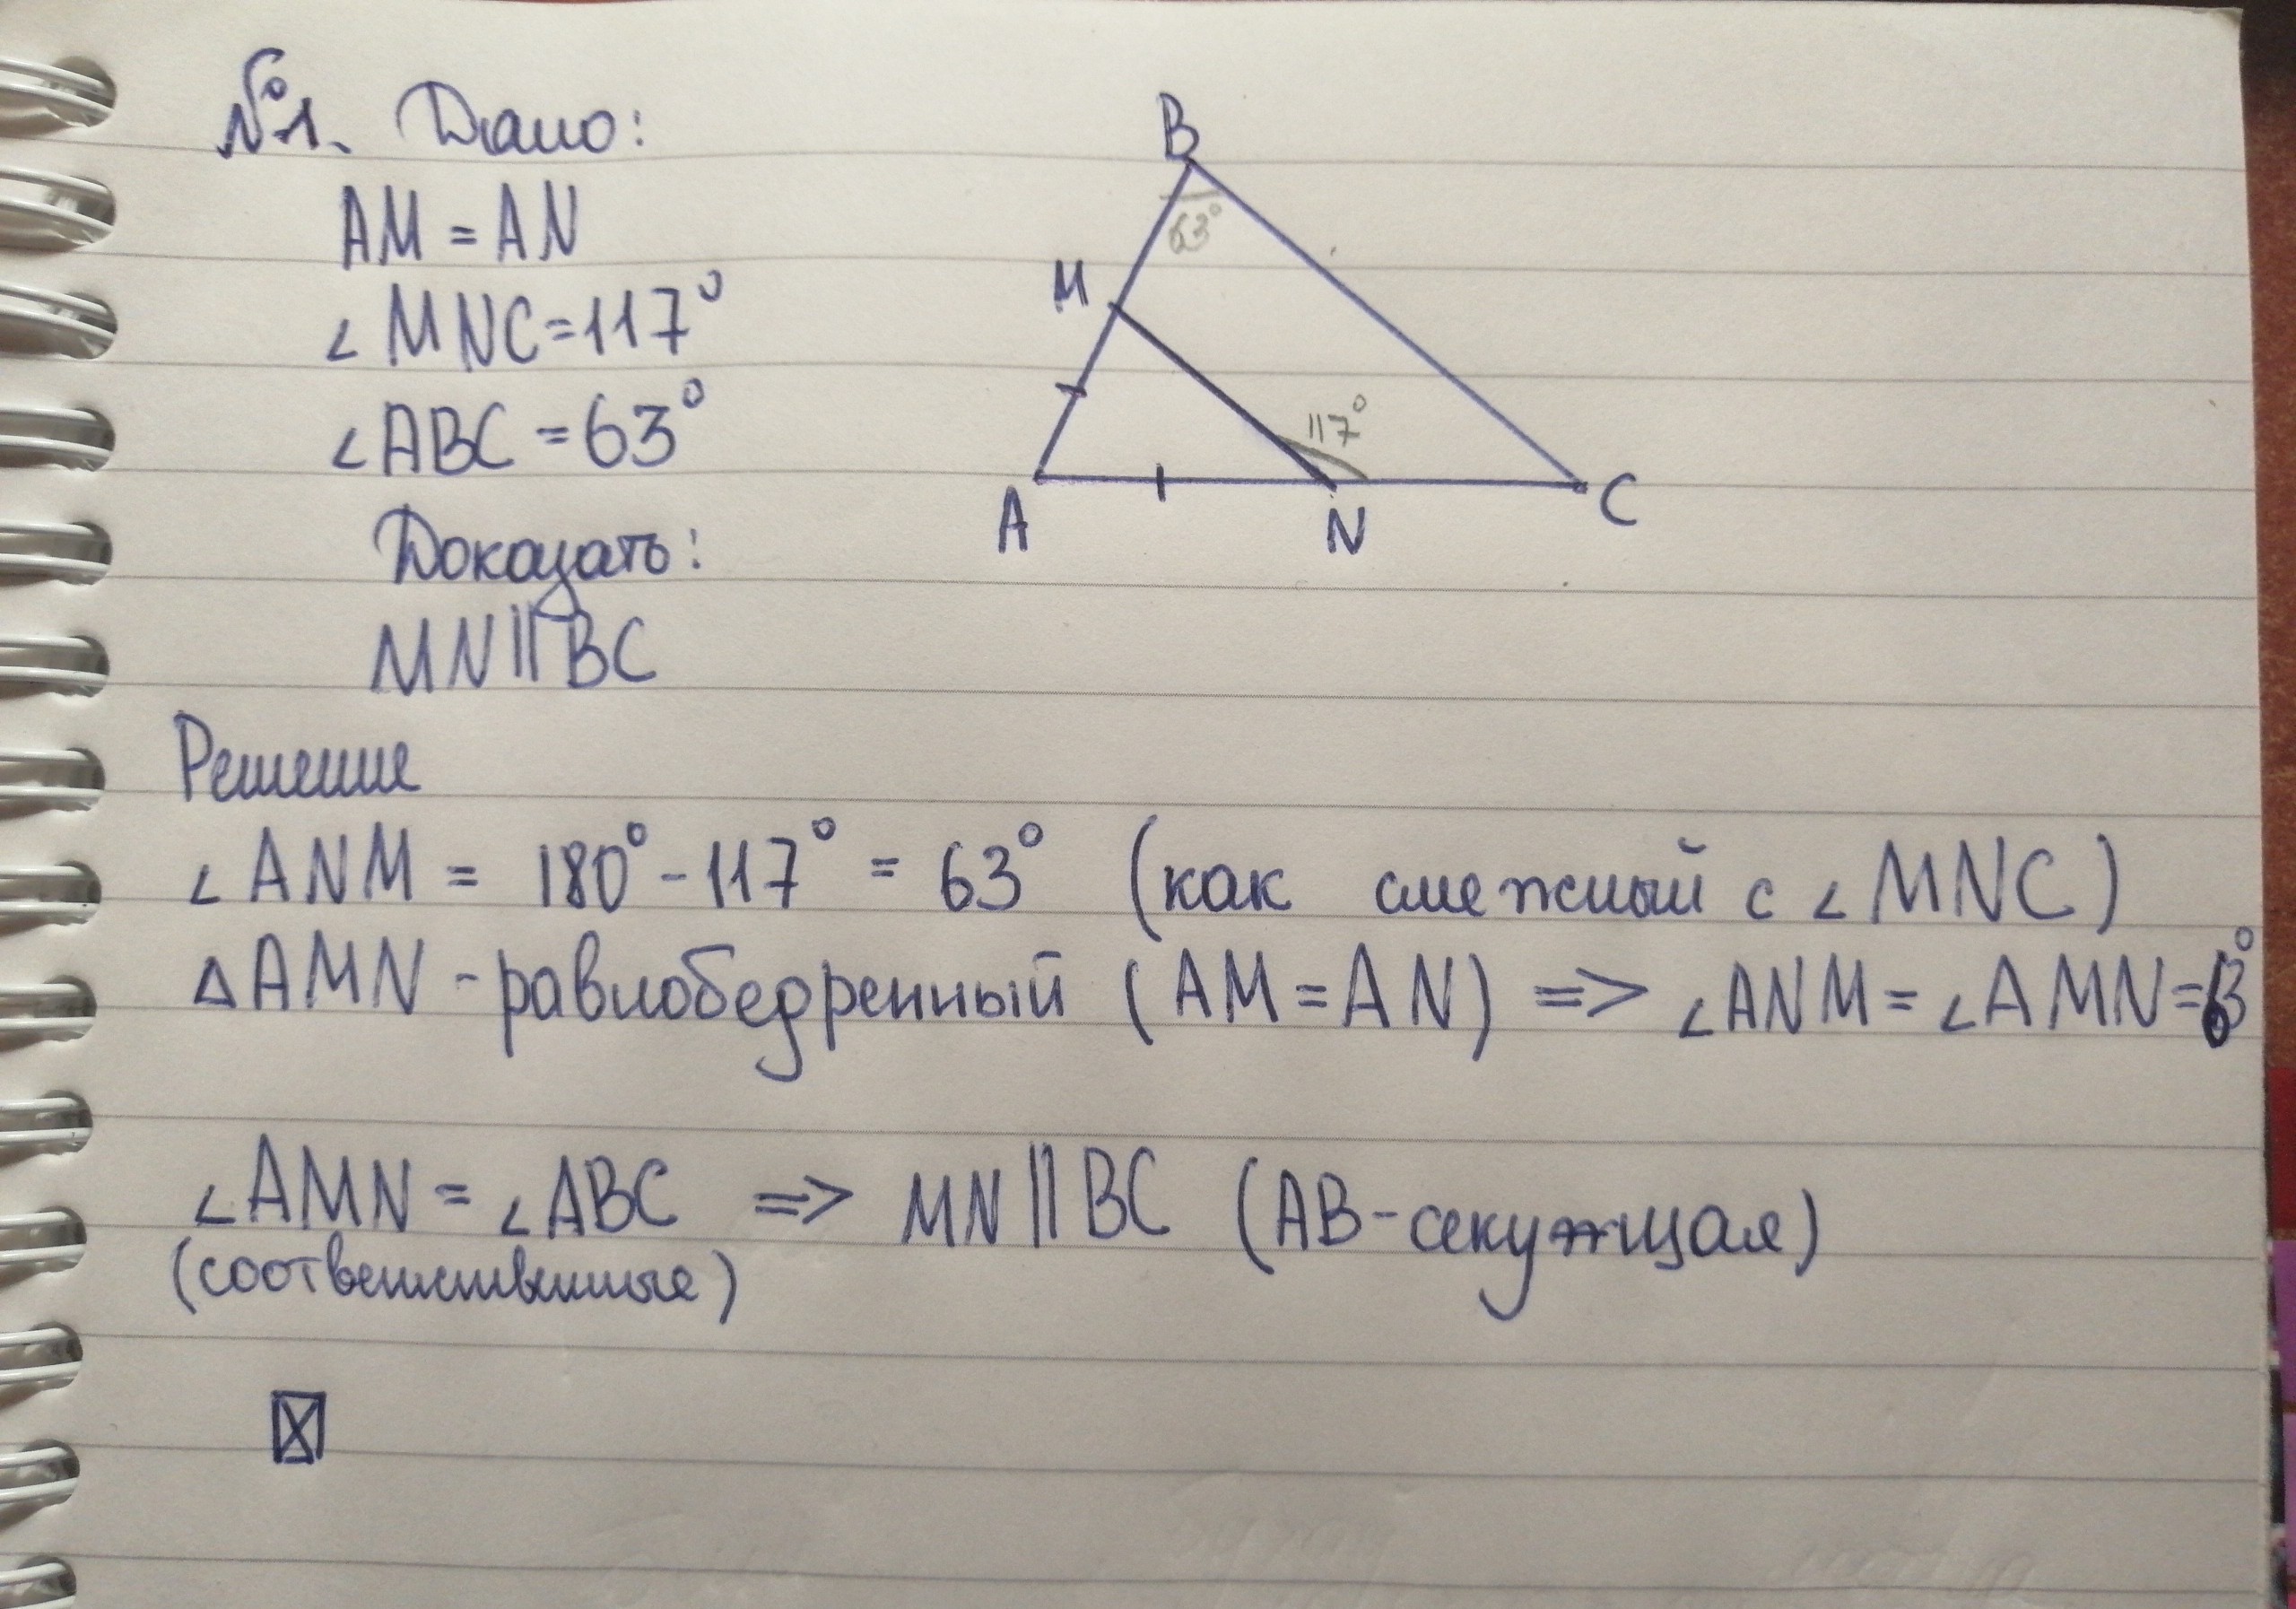 №1. Дано:
AM = AN
∠MNC=117°
∠ABC =63°
Доказать:
MN||BC
B
63°
M
117°
A
N
C
Решение
∠ANM = 180°-117° = 63° (как смежный с ∠MNC)
△AMN - равнобедренный (AM=AN) => ∠ANM = ∠AMN=63°
∠AMN = ∠ABC => MN||BC (AB-секущая)
(соответственные)